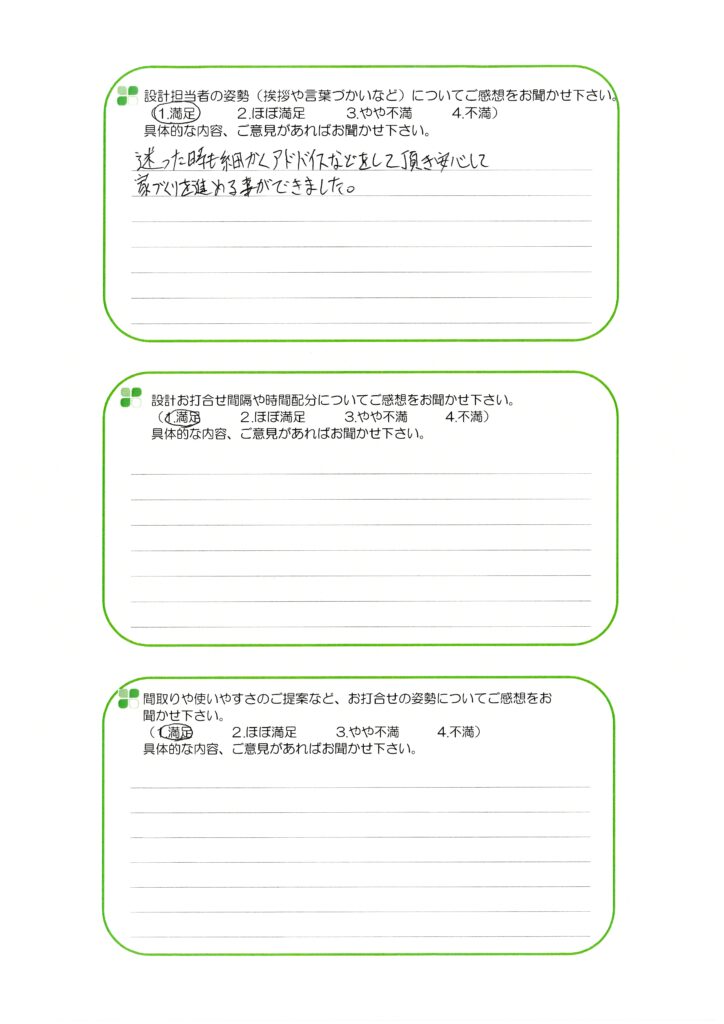 設計担当者の姿勢（挨拶や言葉づかいなど）についてご感想をお聞かせ下さい。
（1.満足　2.ほぼ満足　3.やや不満　4.不満）
具体的な内容、ご意見があればお聞かせ下さい。
迷った時も細かくアドバイスなどをして頂き安心して
家づくりを進める事ができました。
設計お打合せ間隔や時間配分についてご感想をお聞かせ下さい。
（1.満足　2.ほぼ満足　3.やや不満　4.不満）
具体的な内容、ご意見があればお聞かせ下さい。
間取りや使いやすさのご提案など、お打合せの姿勢についてご感想をお
聞かせ下さい。
（1.満足　2.ほぼ満足　3.やや不満　4.不満）
具体的な内容、ご意見があればお聞かせ下さい。